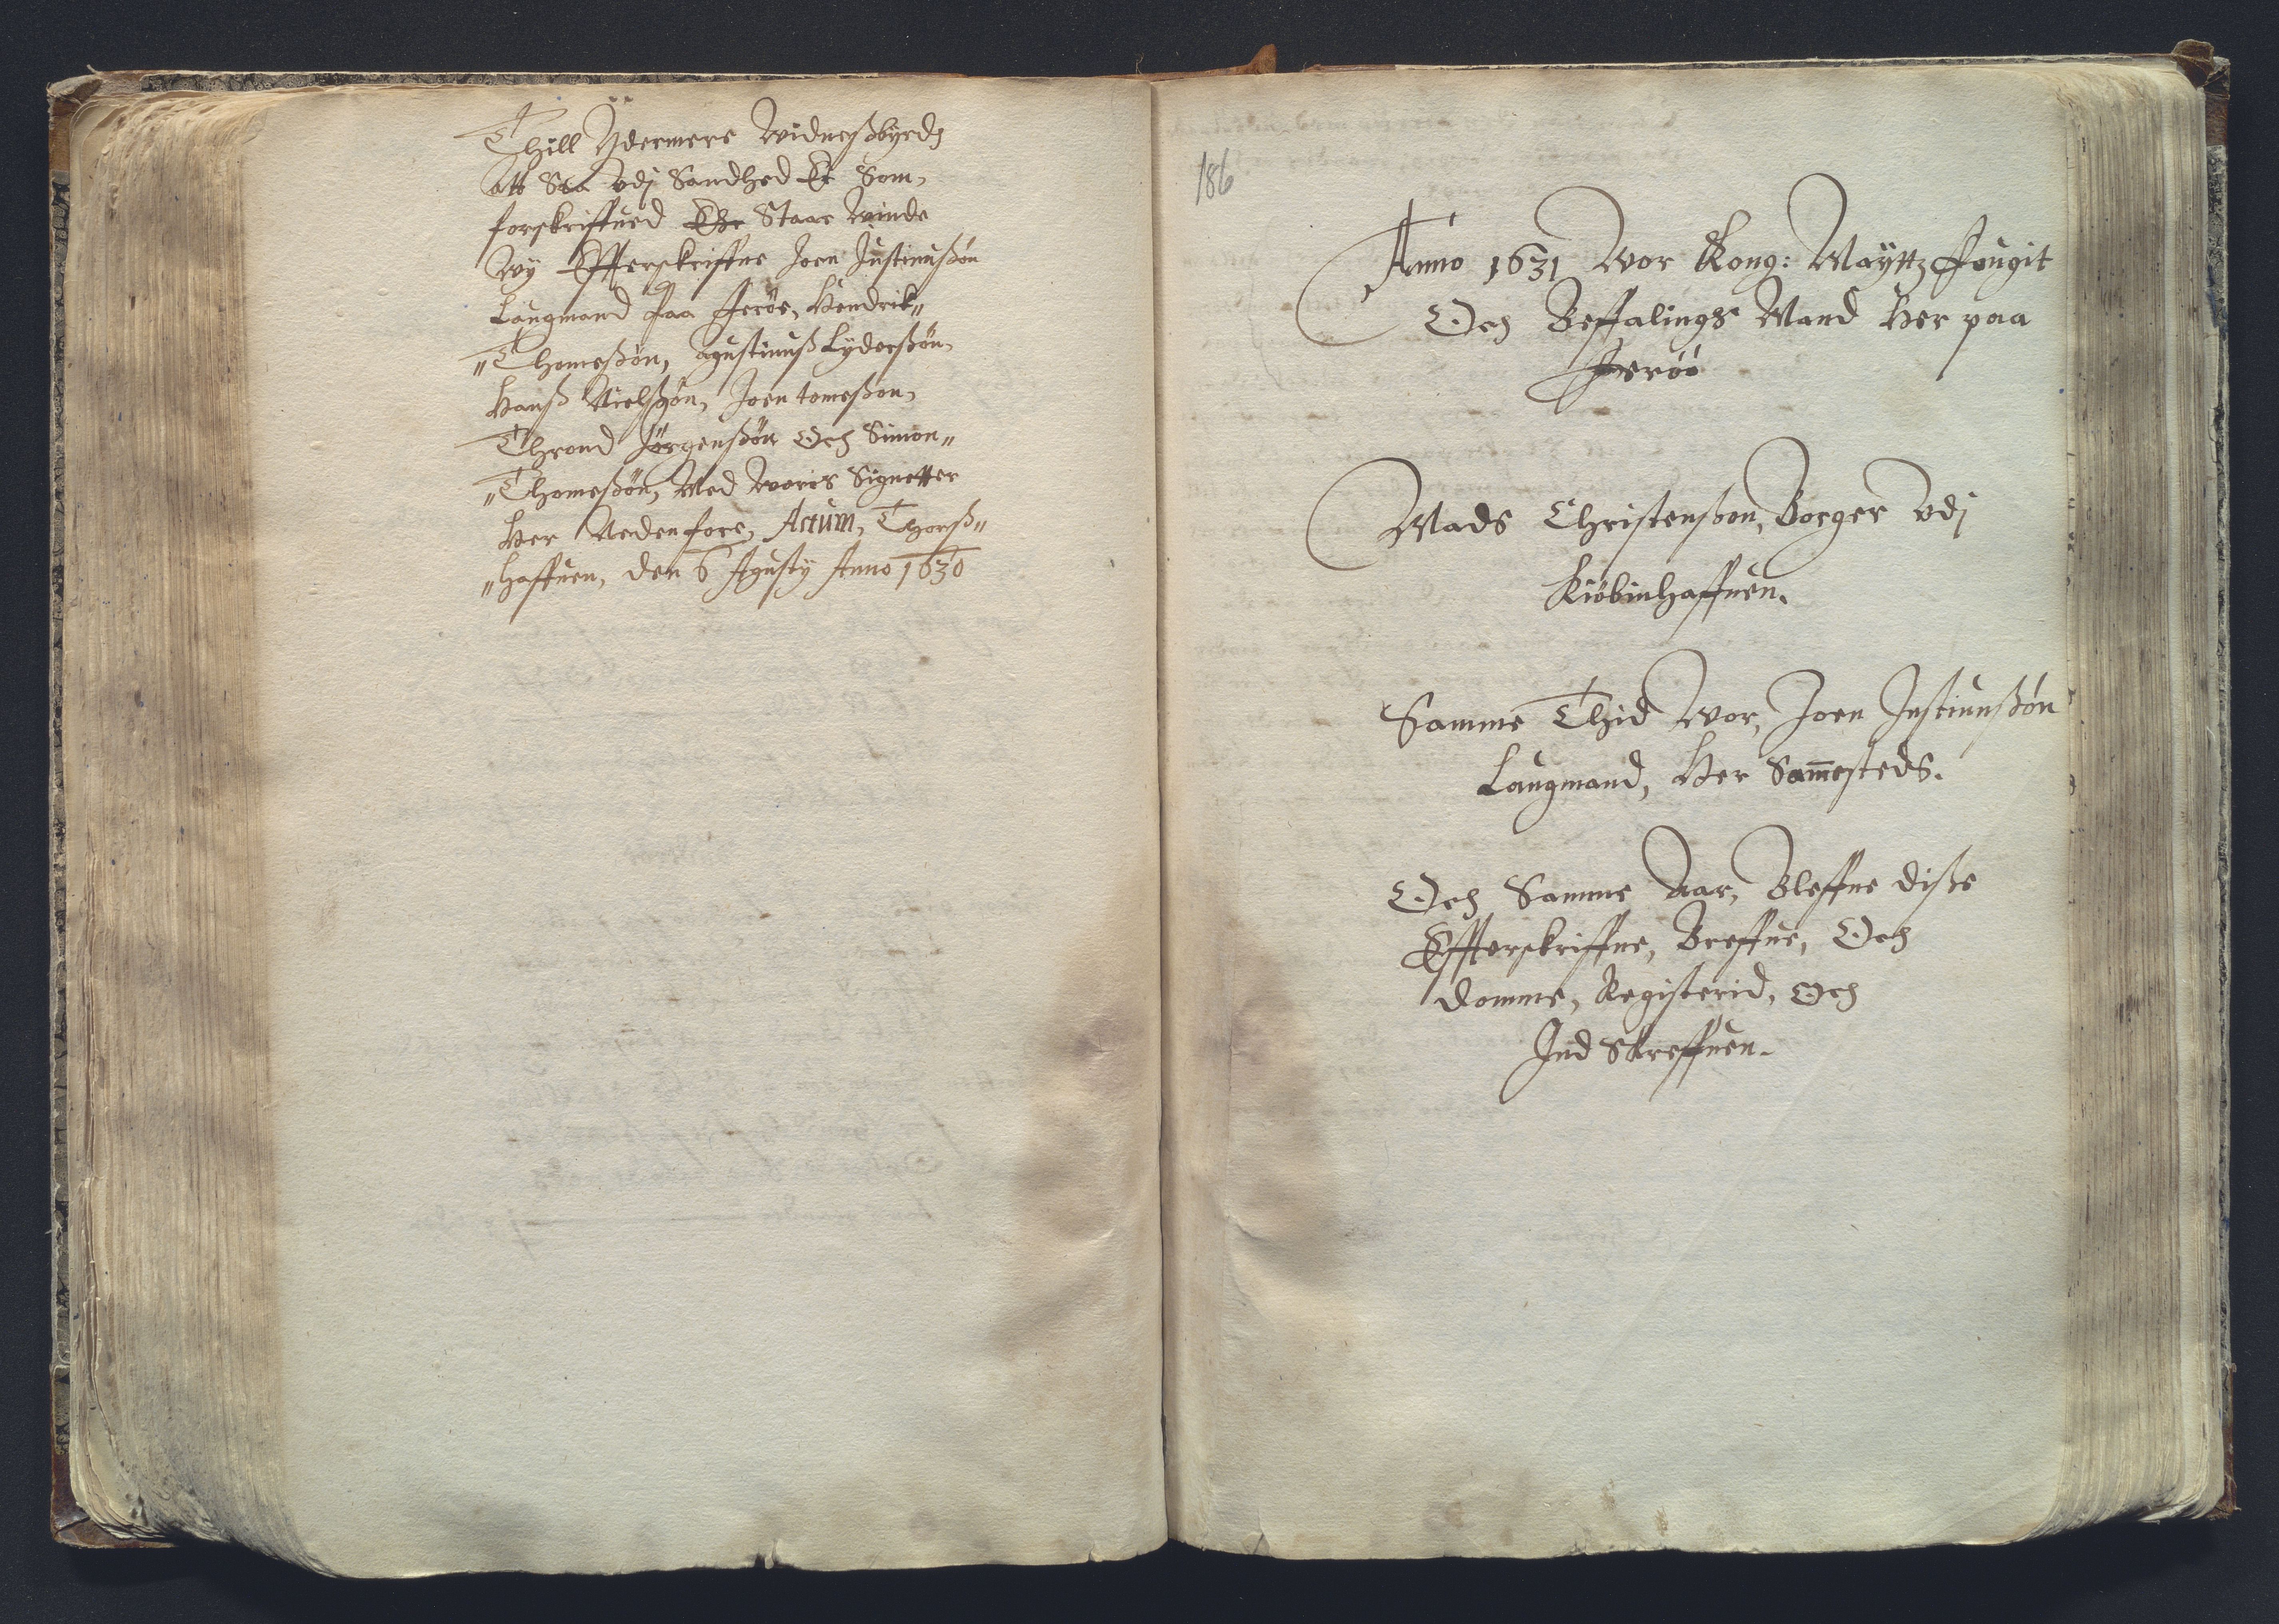 Thill Ÿdermere Widneßbyrdh
att Saa vdj Sandhed Er Som,
forskriffued Ehr Staar Winde
Wÿ Effterskriffne Joen Justinußøn
Laugmand Paa Ferøe, Hendrik„
„Thomeßøn, Agustinuß Lyderßøn,
Hanß Nielßøn, Joen tomeßøn,
Thrond Jørgenßøn Och Simon„
„Thomeßøn, Med Woris Signetter
Her Nedenfore, Actum, Thorß„
„haffuen, den 6 Agusty Anno 1630
186
Anno 1631 Wor Kong: Maÿttz Fougit
Och Beffalings Mand Her paa
Ferøø
Mads Christenßøn, Borger vdj
Kiøbinhaffuen.
Samme Thid Wor, Joen Justinußøn
Laugmand, Her Sam̄esteds.
Och Samme Aar, Bleffue diße
Effterskriffne, Breffue, Och
Domme, Registerid, Och
Ind Skreffuen.